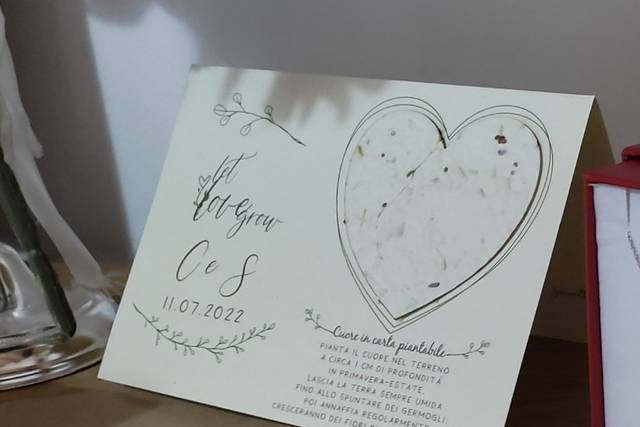 let
love
grow
C e S
11.07.2022
Cuore in carta piantabile
PIANTA IL CUORE NEL TERRENO
A CIRCA 1 CM DI PROFONDITÀ
IN PRIMAVERA-ESTATE.
LASCIA LA TERRA SEMPRE UMIDA
FINO ALLO SPUNTARE DEI GERMOGLI:
POI ANNAFFIA REGOLARMENTE
CRESCERANNO DEI FIORI